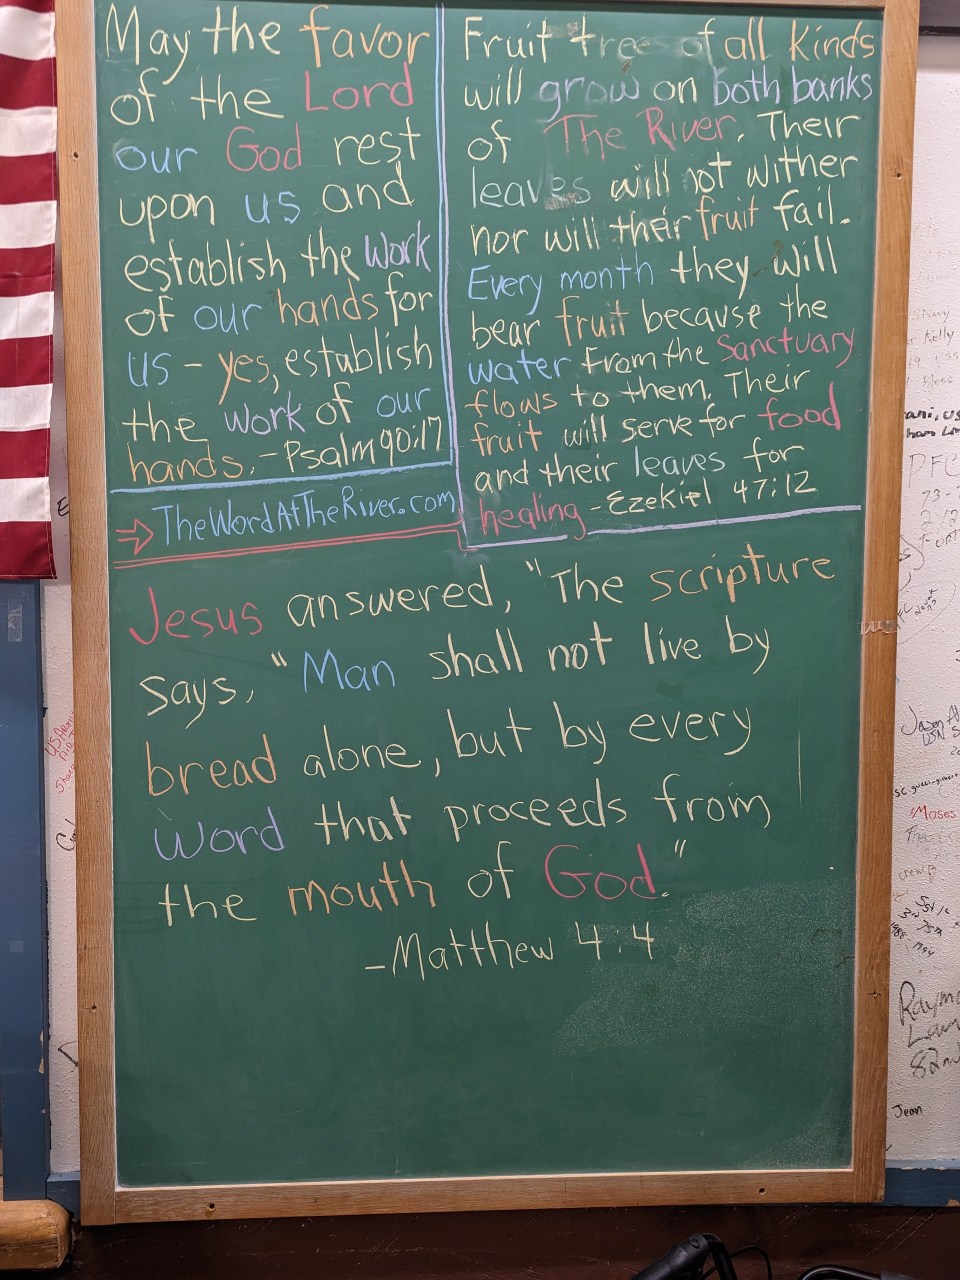 May the favor
of the Lord
our God rest
upon us and
establish the work
of our hands for
us - yes, establish
the work of our
hands. - Psalm 90:17
TheWordAtTheRiver.com
Fruit trees of all kinds
will grow on both banks
of The River. Their
leaves will not wither
nor will their fruit fail.
Every month they will
bear fruit because the
water from the Sanctuary
flows to them. Their
fruit will serve for food
and their leaves for
healing - Ezekiel 47:12
Jesus answered, "The scripture
says, "Man shall not live by
bread alone, but by every
word that proceeds from
the mouth of God."
- Matthew 4:4
Kelly
Bless
DFC
Moses
Raymo
Jean